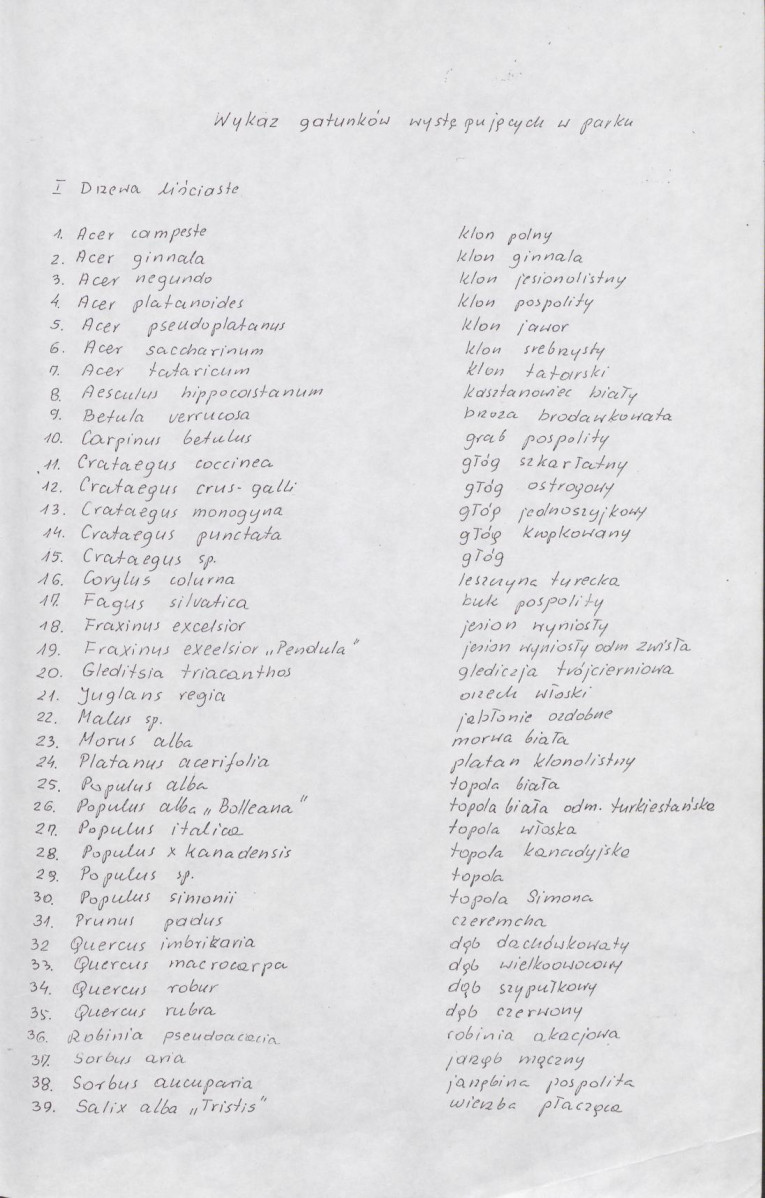 Wykaz gatunków występujących w parku
I Drzewa liściaste
1. Acer campeste klon polny
2. Acer ginnala klon ginnala
3. Acer negundo klon jesionolistny
4. Acer platanoides klon pospolity
5. Acer pseudoplatanus klon jawor
6. Acer saccharinum klon srebrzysty
7. Acer tataricum klon tatarski
8. Aesculus hippocastanum kasztanowiec biały
9. Betula verrucosa brzoza brodawkowata
10. Carpinus betulus grab pospolity
11. Crataegus coccinea głóg szkarłatny
12. Crataegus crus-galli głóg ostrogowy
13. Crataegus monogyna głóg jednoszyjkowy
14. Crataegus punctata głóg kropkowany
15. Crataegus sp. głóg
16. Corylus colurna leszczyna turecka
17. Fagus silvatica buk pospolity
18. Fraxinus excelsior jesion wyniosły
19. Fraxinus excelsior „Pendula" jesion wyniosły odm zwisła
20. Gleditsia triacanthos glediczja trójcierniowa
21. Juglans regia orzech włoski
22. Malus sp. jabłonie ozdobne
23. Morus alba morwa biała
24. Platanus acerifolia platan klonolistny
25. Populus alba topola biała
26. Populus alba „Bolleana" topola biała odm. turkiestańska
27. Populus italica topola włoska
28. Populus x kanadensis topola kanadyjska
29. Populus sp. topola
30. Populus simonii topola Simona
31. Prunus padus czeremcha
32 Quercus imbrikaria dąb dachówkowaty
33. Quercus macrocarpa dąb wielkoowocowy
34. Quercus robur dąb szypułkowy
35. Quercus rubra dąb czerwony
36. Robinia pseudoacacia robinia akacjowa
37. Sorbus aria jarząb mączny
38. Sorbus aucuparia jarzębina pospolita
39. Salix alba „Tristis" wierzba płacząca